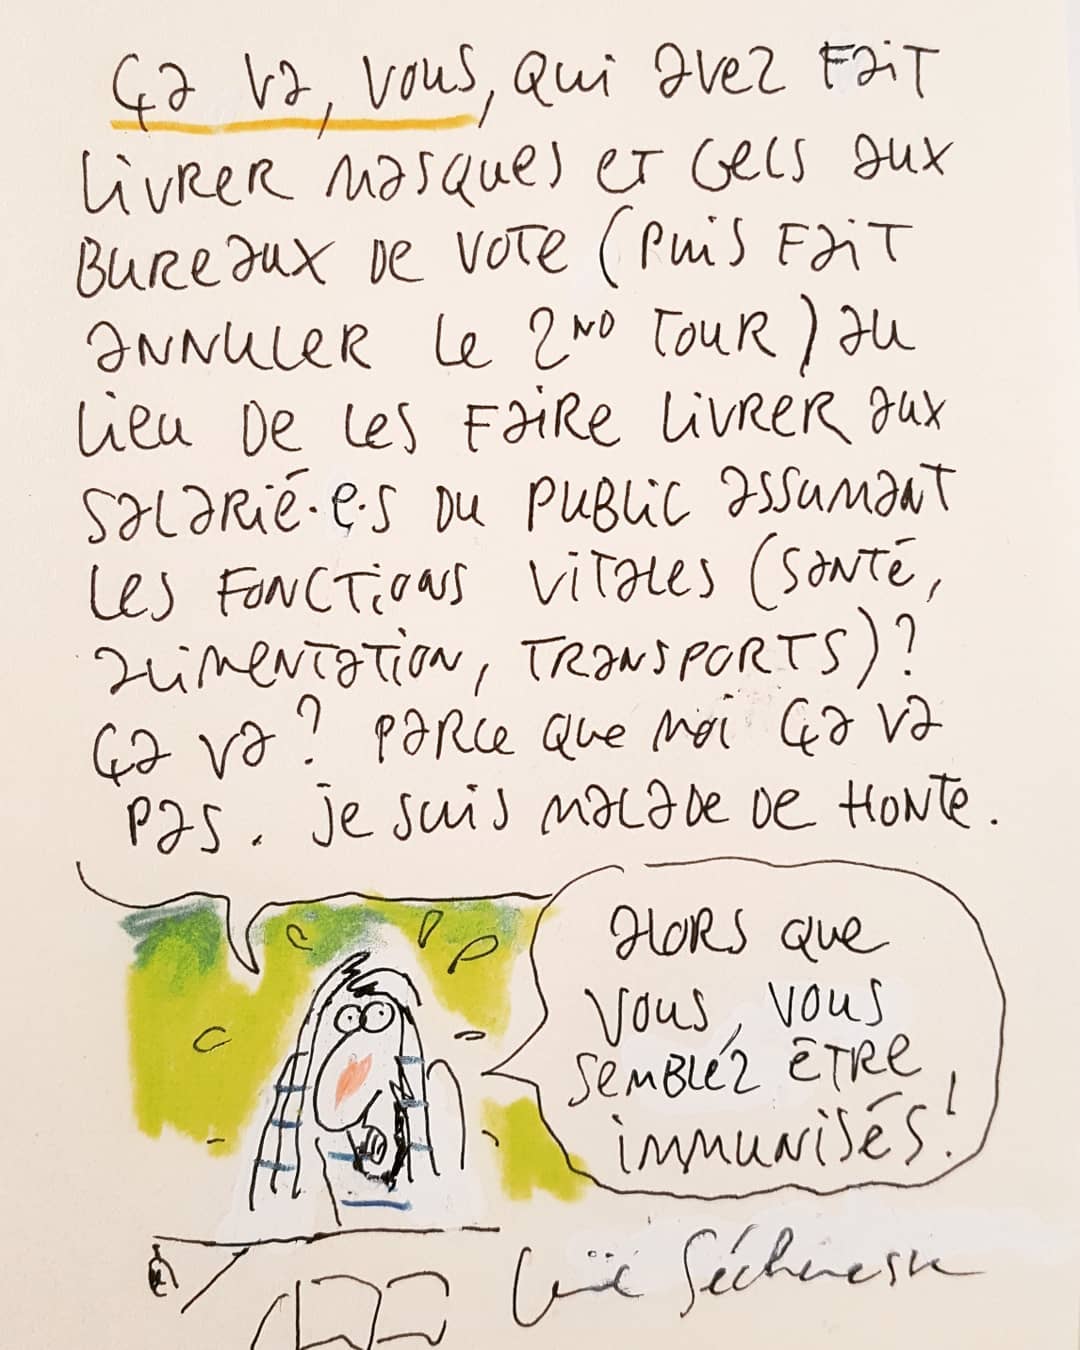 ça va, vous, qui avez fait
livrer masques et gels aux
bureaux de vote (puis fait
annuler le 2ND tour) au
lieu de les faire livrer aux
salarié.e.s du public assumant
les fonctions vitales (santé,
alimentation, transports)?
ça va? parce que moi ça va
pas. je suis malade de honte.
alors que
vous, vous
semblez être
immunisés!